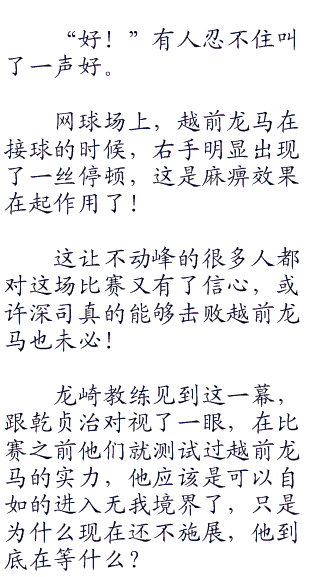 “好！”有人忍不住叫
了一声好。
网球场上，越前龙马在
接球的时候，右手明显出现
了一丝停顿，这是麻痹效果
在起作用了！
这让不动峰的很多人都
对这场比赛又有了信心，或
许深司真的能够击败越前龙
马也未必！
龙崎教练见到这一幕，
跟乾贞治对视了一眼，在比
赛之前他们就测试过越前龙
马的实力，他应该是可以自
如的进入无我境界了，只是
为什么现在还不施展，他到
底在等什么？